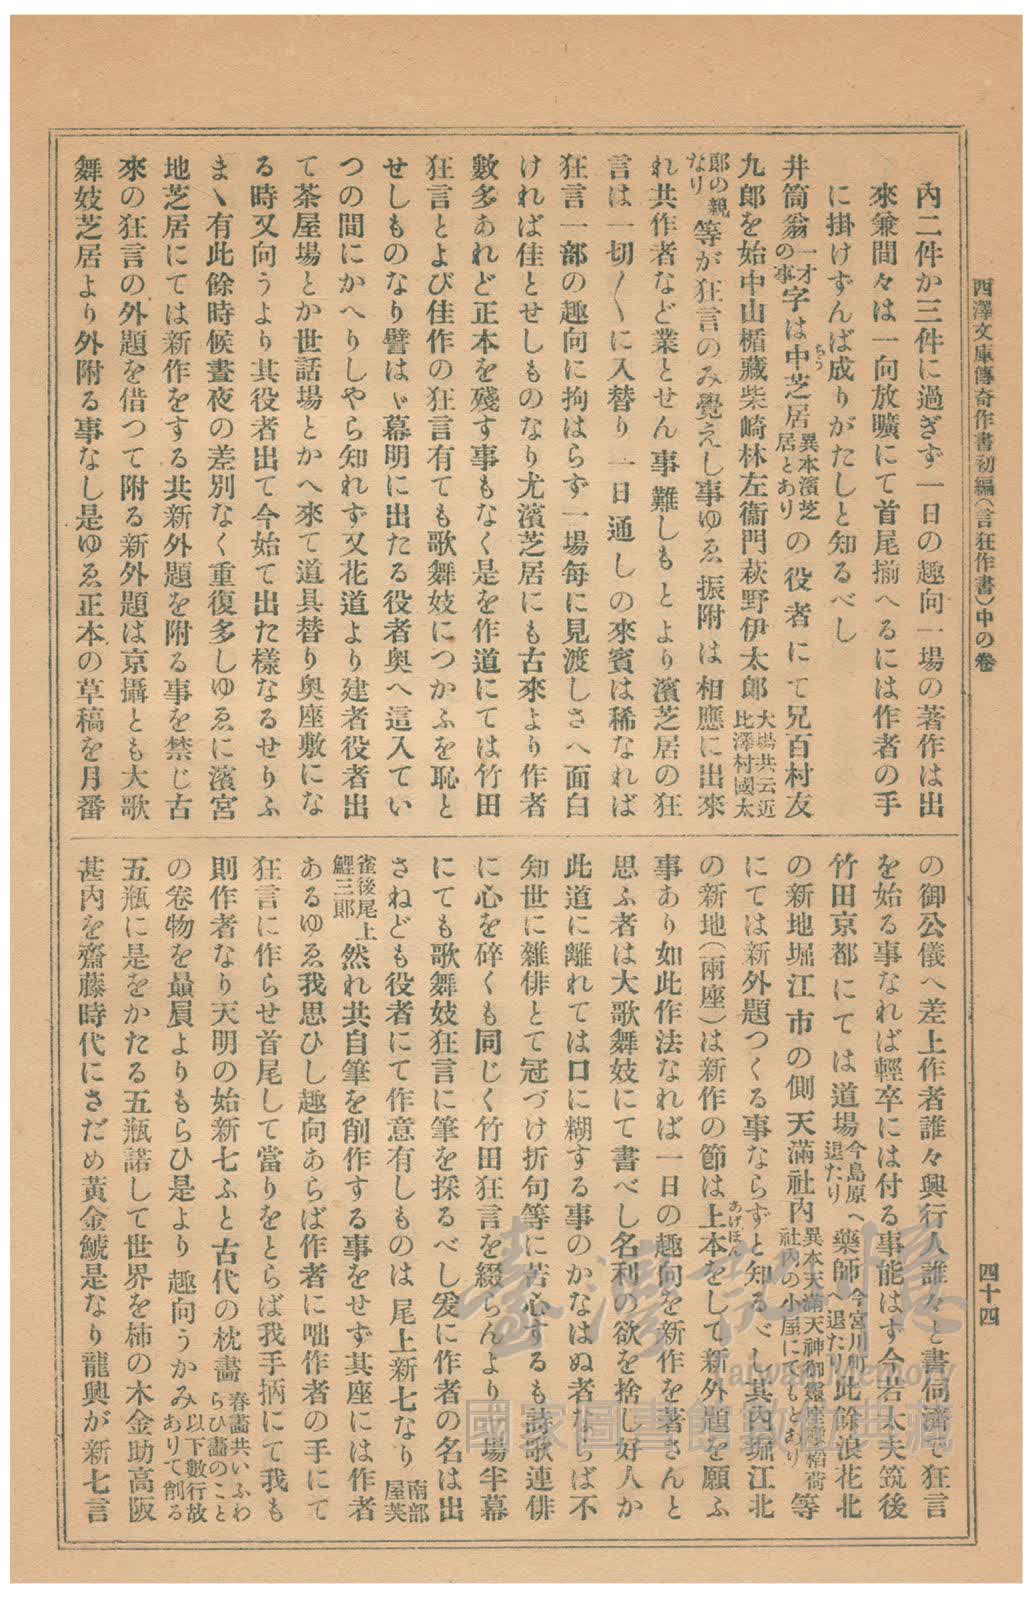 西澤文庫傳奇作書初編(言狂作書)中の卷
四十四
內二件か三件に過ぎず一日の趣向一場の著作は出
來兼間々は一向放曠にて首尾揃へるには作者の手
に掛けずんば成りがたしと知るべし
井筒翁一才の事字は中芝居異本濱芝居とありの役者にて兄百村友
九郎を始中山楯藏柴崎林左衞門萩野伊太郎大場共云近比澤村國太
郎の親なり等が狂言のみ覺えし事ゆゑ振附は相應に出來
れ共作者など業とせん事難しもとより濱芝居の狂
言は一切〱に入替り一日通しの來賓は稀なれば
狂言一部の趣向に拘はらず一場每に見渡しさへ面白
ければ佳とせしものなり尤濱芝居にも古來より作者
數多あれど正本を殘す事もなく是を作道にては竹田
狂言とよび佳作の狂言有ても歌舞妓につかふを恥と
せしものなり譬はゞ幕明に出たる役者奧へ這入てい
つの間にかへりしやら知れず又花道より建者役者出
て茶屋場とか世話場とかへ來て道具替り奧座敷にな
る時又向うより其役者出て今始て出た樣なるせりふ
まゝ有此餘時候晝夜の差別なく重復多しゆゑに濱宮
地芝居にては新作をする共新外題を附る事を禁じ古
來の狂言の外題を借つて附る新外題は京攝とも大歌
舞妓芝居より外附る事なし是ゆゑ正本の草稿を月番
の御公儀へ差上作者誰々興行人誰々と書伺濟て狂言
を始る事なれば輕卒には付る事能はず今若太夫筑後
竹田京都にては道場今島原へ退たり藥師今宮川町へ退たり此餘浪花北
の新地堀江市の側天滿社內異本天滿天神御靈座摩稻荷社內の小屋にてもとあり等
にては新外題つくる事ならずと知るべし其內堀江北
の新地(兩座)は新作の節は上本あげほんをして新外題を願ふ
事あり如此作法なれば一日の趣向を新作を著さんと
思ふ者は大歌舞妓にて書べし名利の欲を捨し好人か
此道に離れては口に糊する事のかなはぬ者ならば不
知世に雜俳とて冠づけ折句等に苦心するも詩歌連俳
に心を碎くも同じく竹田狂言を綴らんより一場半幕
にても歌舞妓狂言に筆を採るべし爰に作者の名は出
さねども役者にて作意有しものは尾上新七なり南部屋芙
雀後尾上鯉三郎然れ共自筆を削作する事をせず其座には作者
あるゆゑ我思ひし趣向あらば作者に咄作者の手にて
狂言に作らせ首尾して當りをとらば我手柄にて我も
則作者なり天明の始新七ふと古代の枕畫春畫共いふわらひ畫のこと
の卷物を贔屓よりもらひ是より趣向うかみ以下數行故ありて削る
五瓶に是をかたる五瓶諾して世界を柿の木金助高阪
甚內を齋藤時代にさだめ黃金鯱是なり龍興が新七言
臺灣記憶
Taiwan Memory
國家圖書館數位典藏